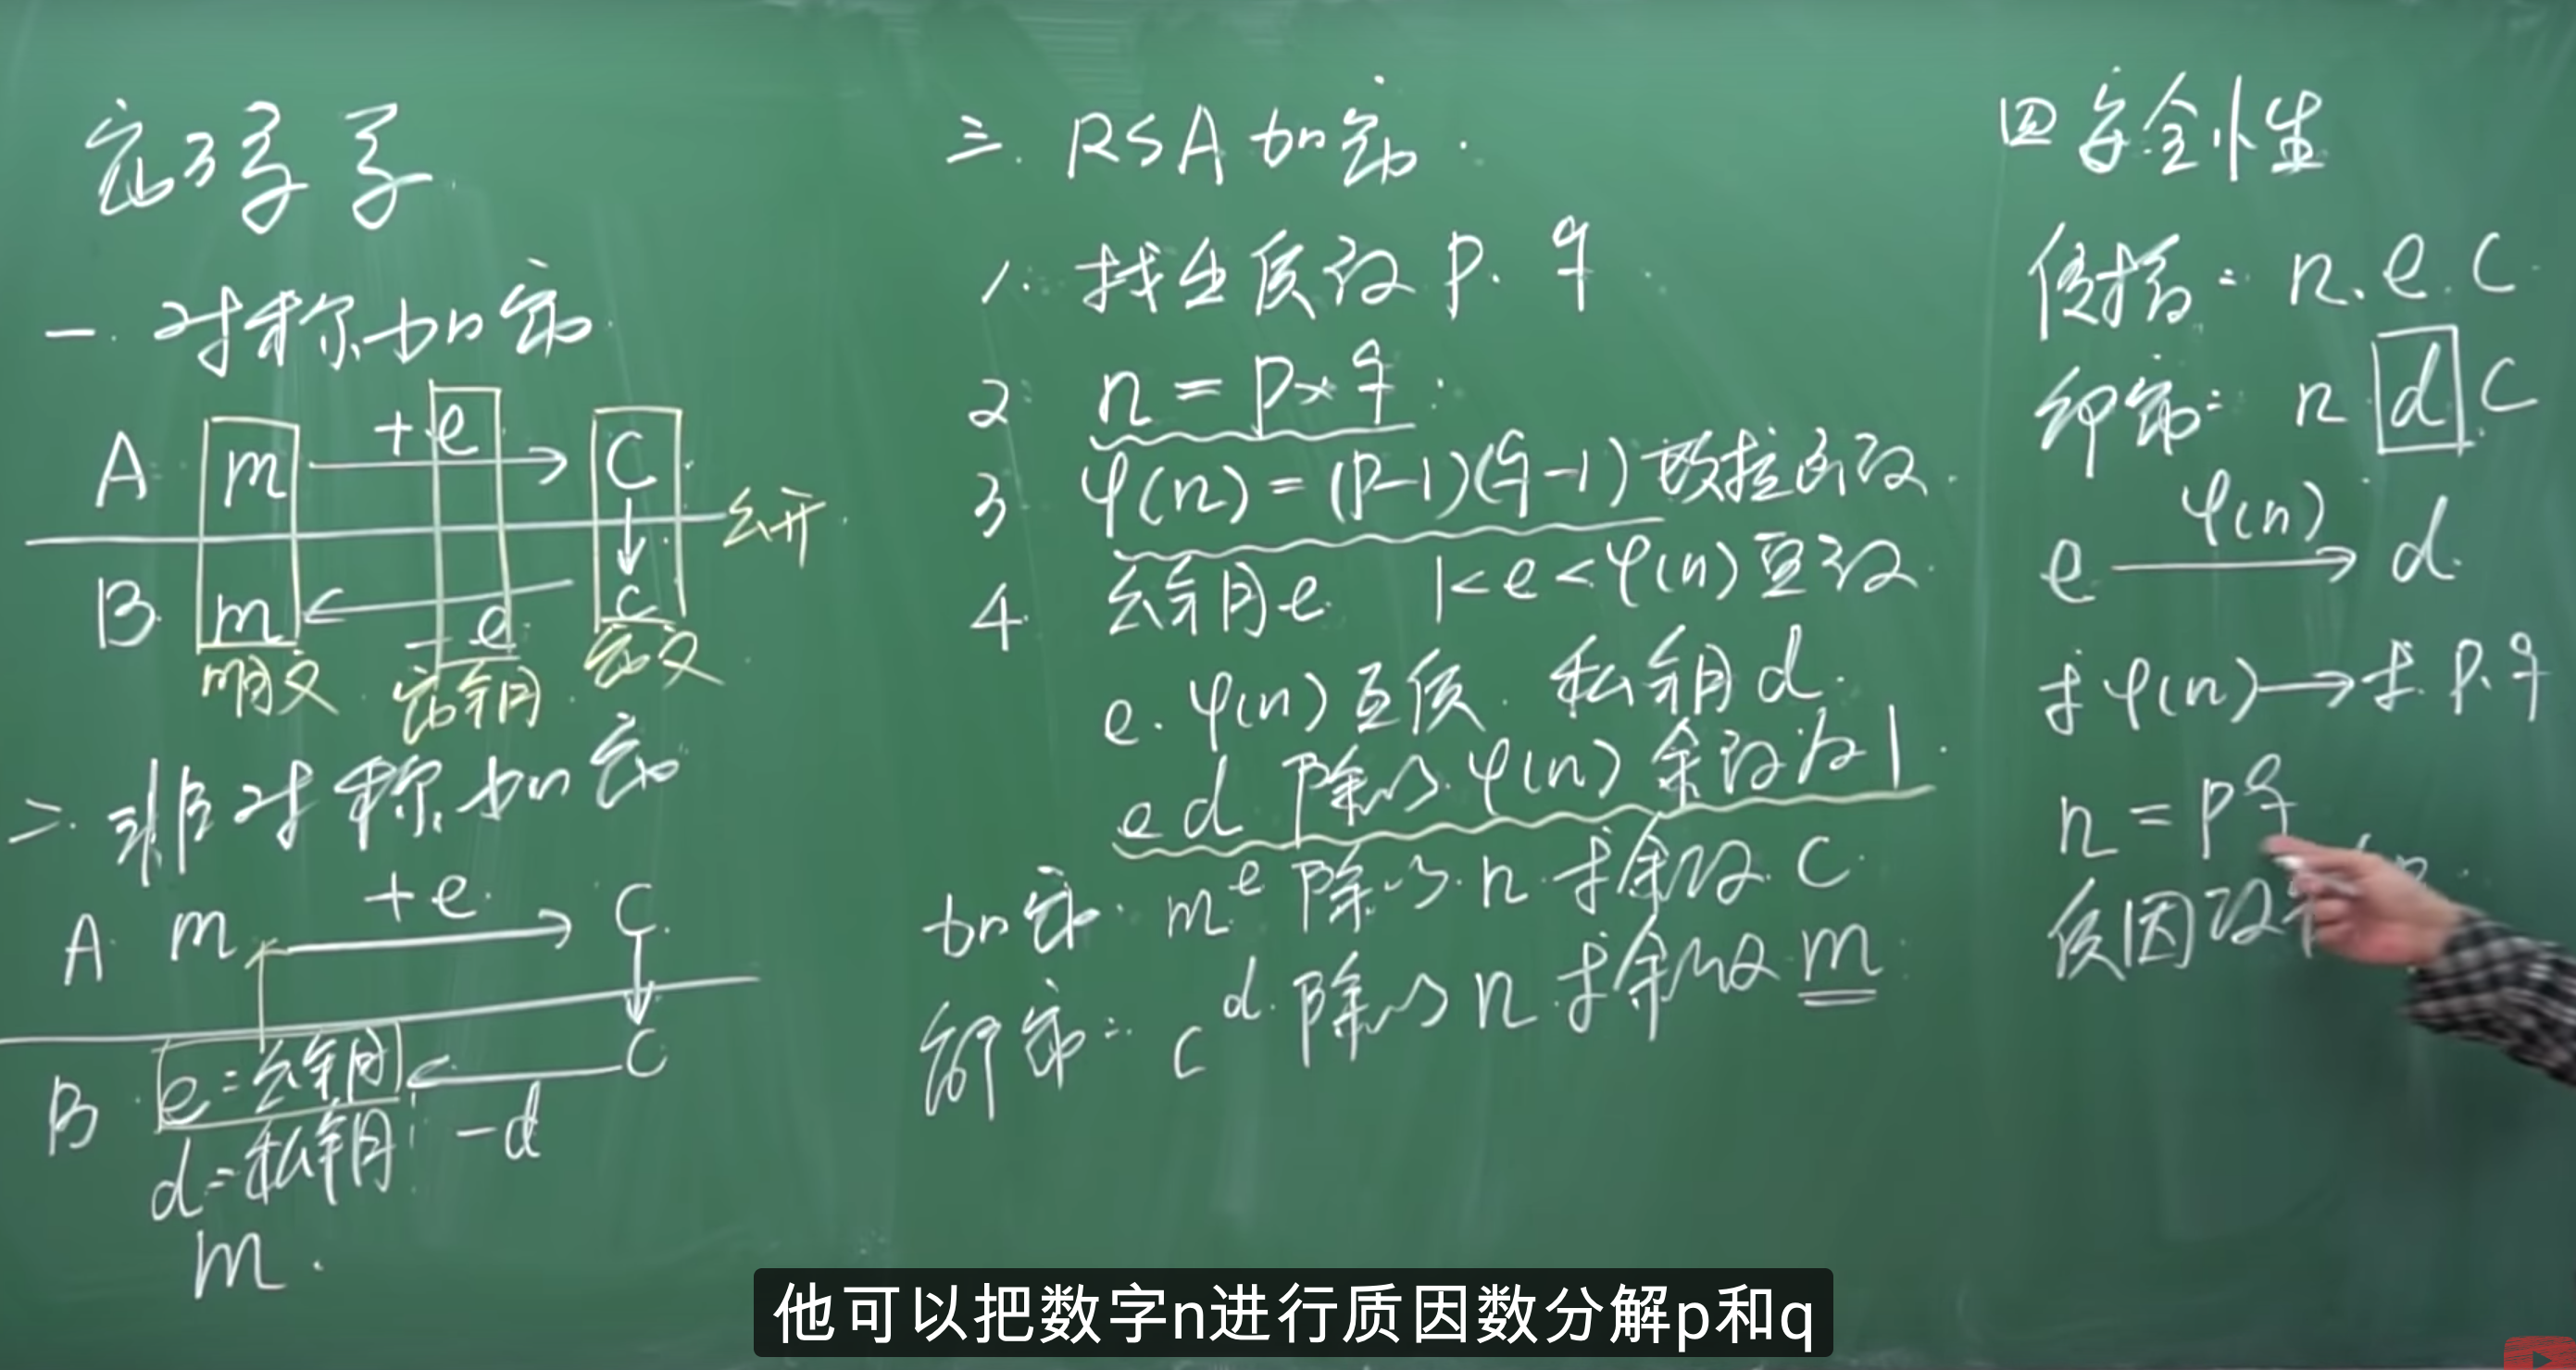 密码学
一. 对称加密.
A m +e C
公开
B m -e c
明文 密钥 密文
二. 非对称加密
A m +e C
B e=公钥 C
d=私钥 -d
m
三. RSA加密.
1. 找出质数 p. q
2 n = p×q
3 φ(n) = (p-1)(q-1) 欧拉函数
4 公钥e 1<e<φ(n) 整数
e. φ(n) 互质. 私钥d.
ed 除以 φ(n) 余数为1
加密: m^e 除以 n 求余数 C
解密: c^d 除以 n 求余数 m
四 安全性
传播: n. e. C
解密: n d C
e φ(n) d
求 φ(n) → 求 p. q
n = pq
质因数
他可以把数字n进行质因数分解p和q